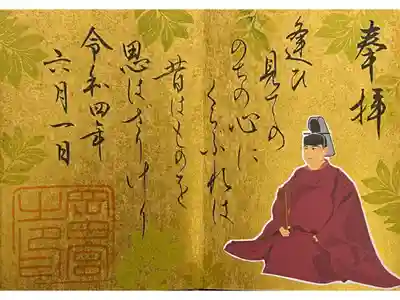 奉拝
逢ひ
見ての
のちの心に
くらぶれは
昔はものを
思はざりけり
令和四年
六月一日